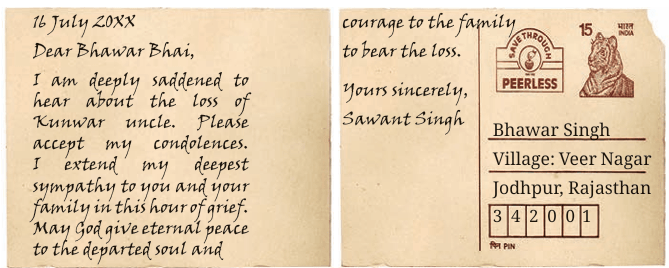 16 July 20XX
Dear Bhawar Bhai,
I am deeply saddened to
hear about the loss of
Kunwar uncle. Please
accept my condolences.
I extend my deepest
sympathy to you and your
family in this hour of grief.
May God give eternal peace
to the departed soul and
courage to the family
to bear the loss.
Yours sincerely,
Sawant Singh
SAVE THROUGH
PEERLESS
15 भारत
INDIA
Bhawar Singh
Village: Veer Nagar
Jodhpur, Rajasthan
3 4 2 0 0 1
पिन PIN